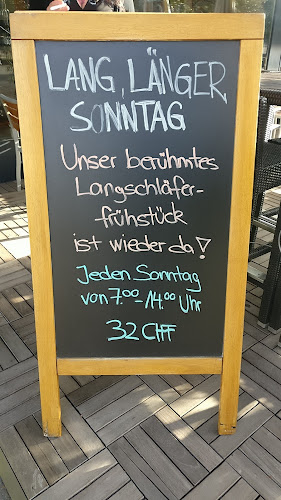 LANG, LÄNGER
SONNTAG
Unser berühmtes
Langschläfer-
frühstück
ist wieder da!
Jeden Sonntag
von 7.00-14.00 Uhr
32 CHF